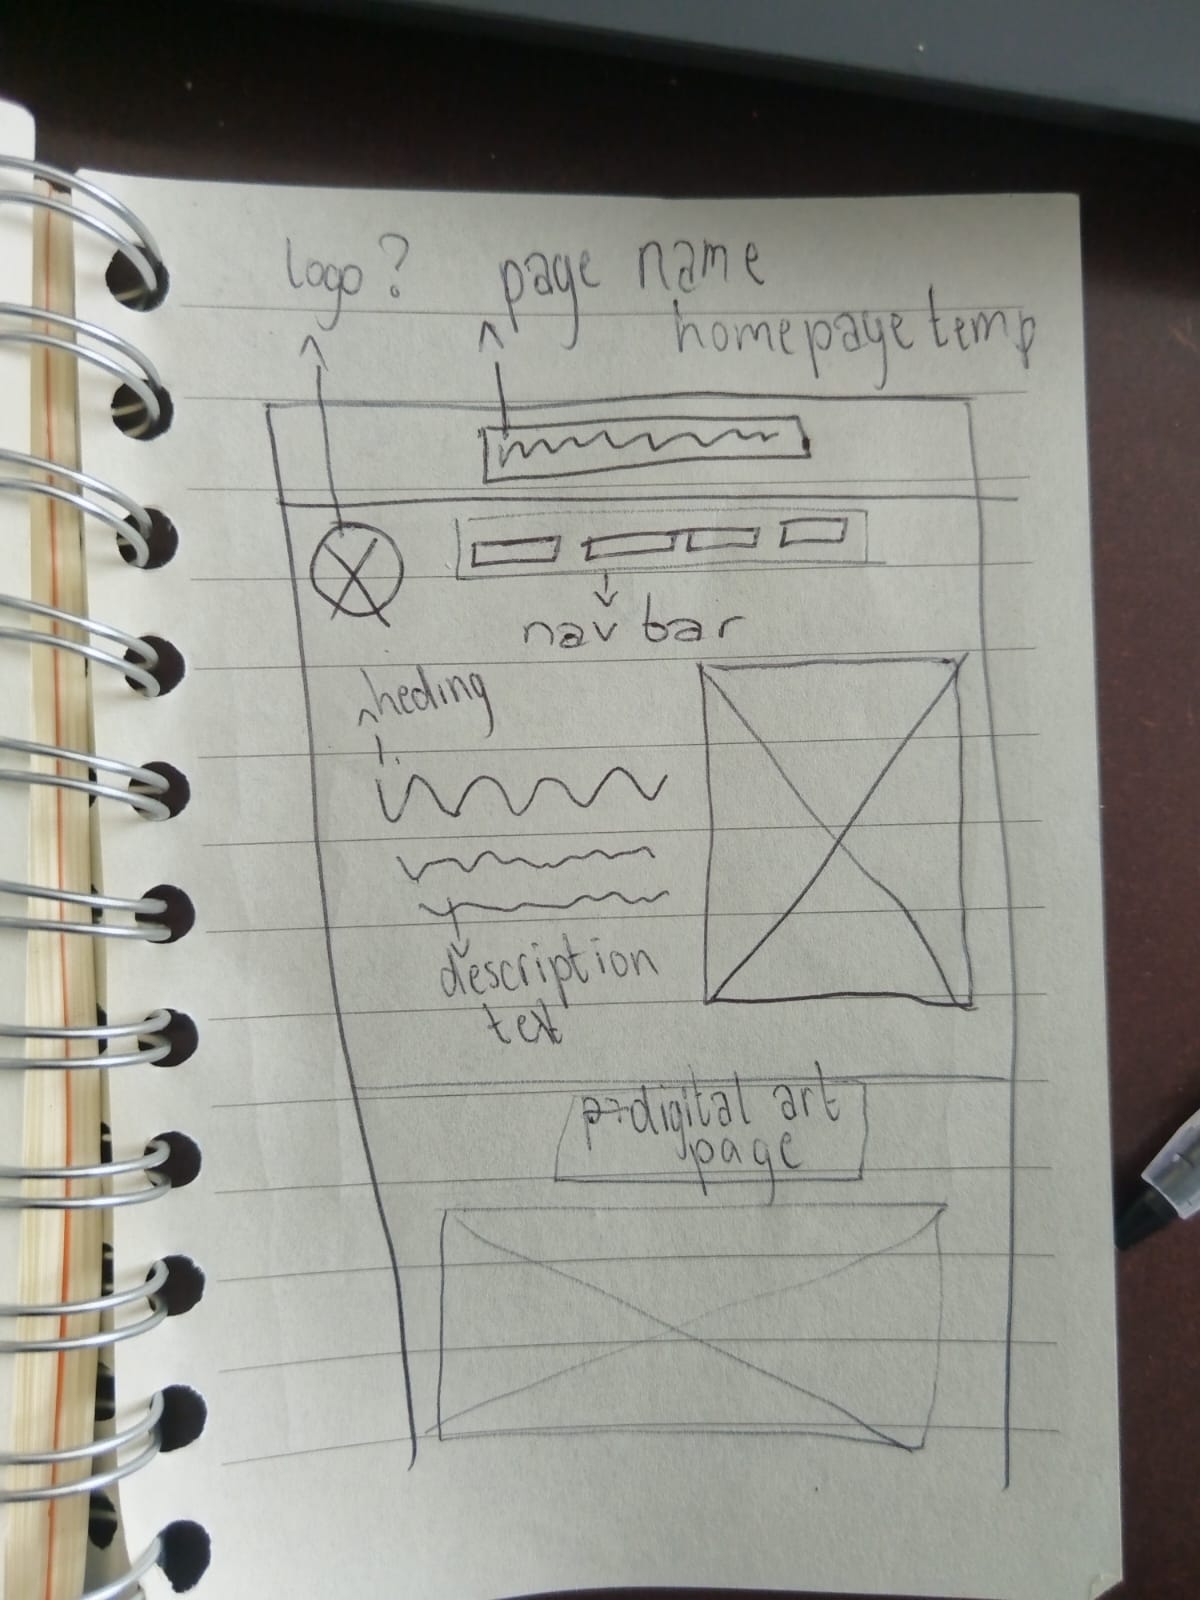 logo? page name
homepage temp
nav bar
heding
description
text
digital art
page